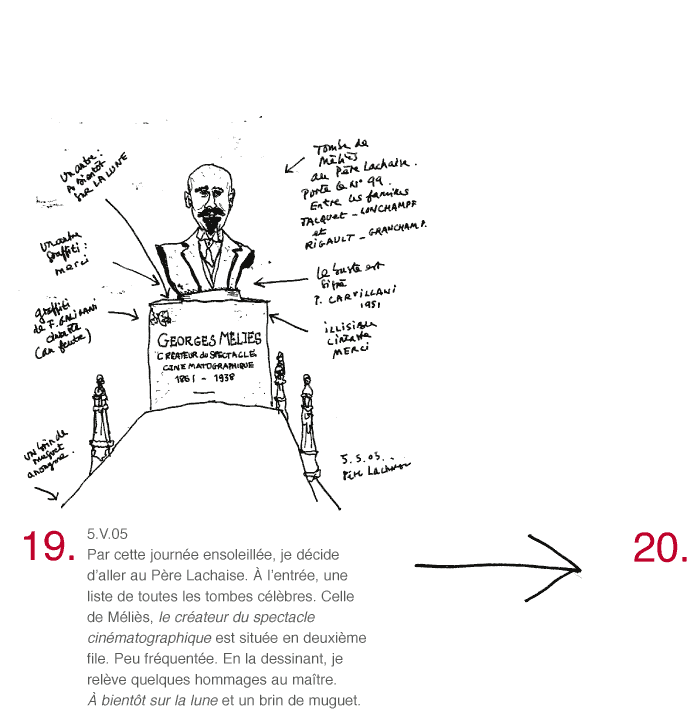 Un autre :
À bientôt
SUR LA LUNE
Un autre
graffiti :
merci
graffiti
de F.
(au feutre)
UN brin de
muguet
anonyme.
Tombe de
Méliès
au Père Lachaise.
Porte le N° 99.
Entre les familles
JACQUET - LONCHAMPF
et
RIGAULT - GRANCHAMP.
Le buste est
signé
P. CARVILLANI
1951
ILLISIBLE
MERCI
GEORGES MÉLIÈS
CRÉATEUR du SPECTACLE
CINÉMATOGRAPHIQUE
1861 - 1938
5.5.05.
Père Lachaise
19.
5.V.05
Par cette journée ensoleillée, je décide
d’aller au Père Lachaise. À l’entrée, une
liste de toutes les tombes célèbres. Celle
de Méliès, le créateur du spectacle
cinématographique est située en deuxième
file. Peu fréquentée. En la dessinant, je
relève quelques hommages au maître.
À bientôt sur la lune et un brin de muguet.
20.